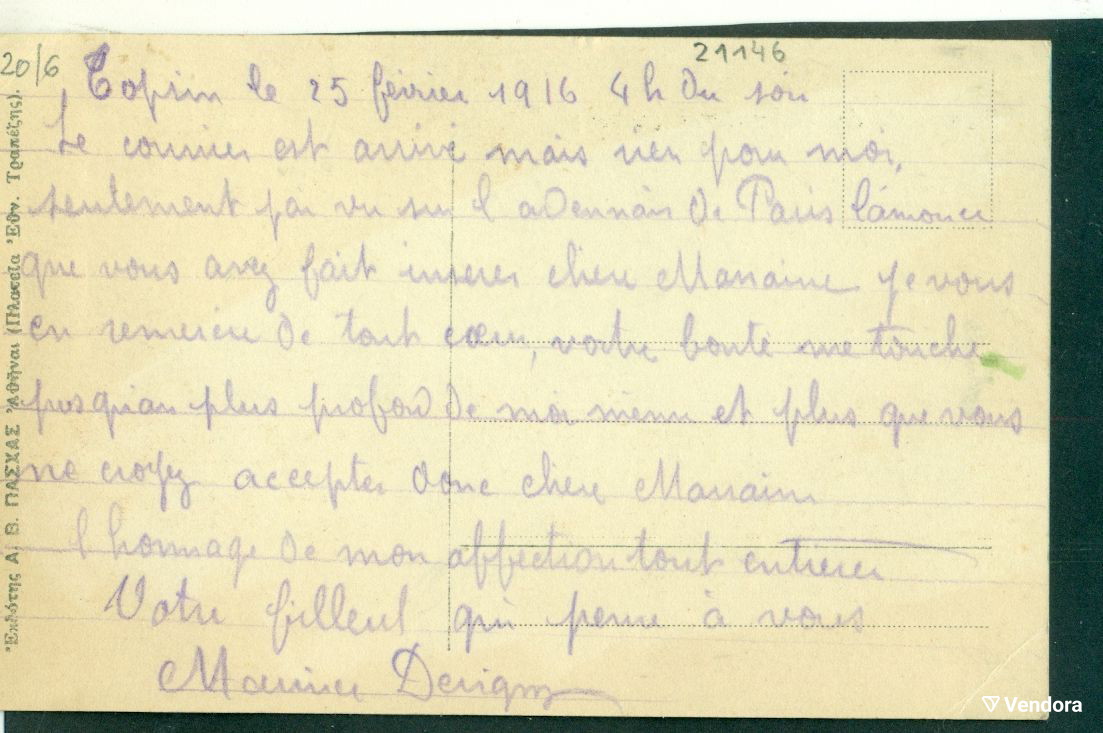 21146
20/6
Topsin le 25 février 1916 4h du soir
Le courrier est arrivé mais rien pour moi,
seulement j'ai vu sur l Paris l'annonce
que vous avez fait inserer chere Marraine je vous
en remercie de tout cœur, votre bonté me touche
jusqu'au plus profond de moi même et plus que vous
ne croyez accepter donc chere Marraine
l hommage de mon affection tout entiere
Votre filleul qui pense à vous
Maurice
Ἐκδότης Α. Β. ΠΑΣΧΑΣ Ἀθῆναι (Πλατεῖα Ἐθν. Τραπέζης).
Vendora